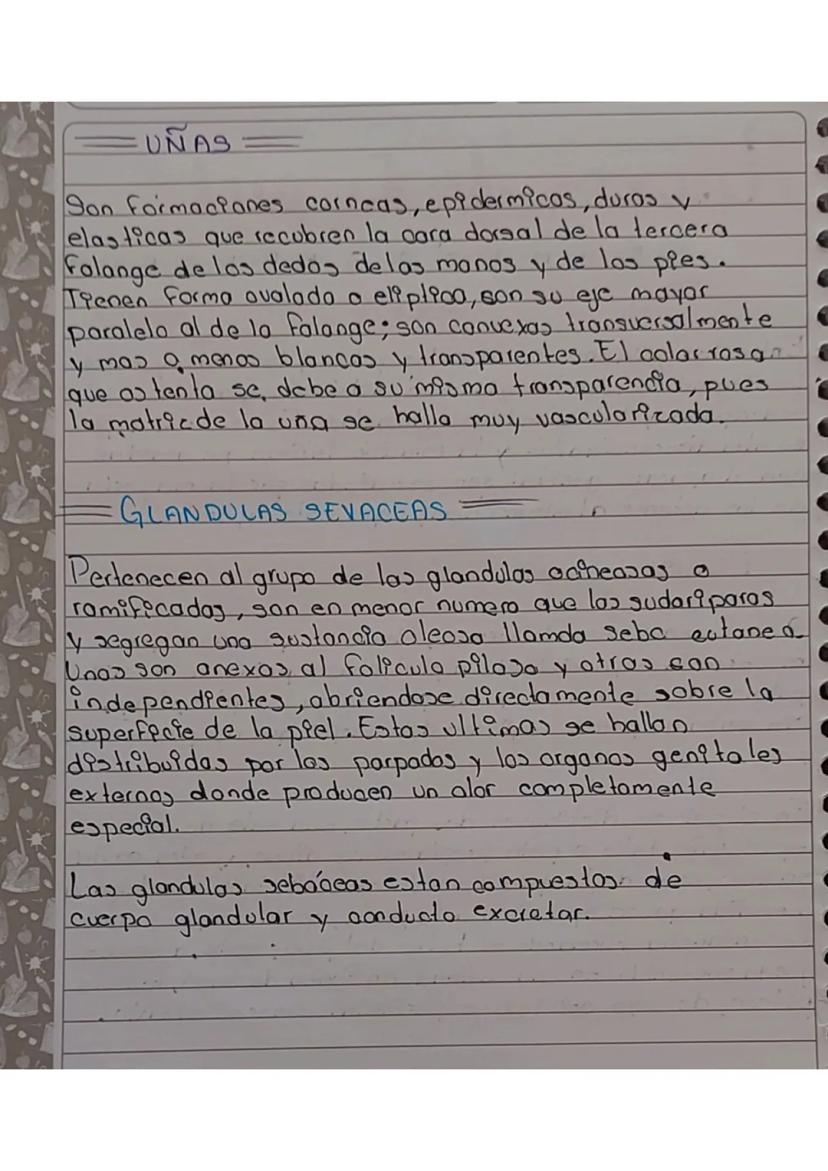 UÑAS
Son formaciones corneas, epidermicos, duras y
elasticas que recubren la cara dorsal de la tercera
Falange de los dedos de las manos y de los pies.
Tienen forma ovalada o elíptica, son su eje mayor
paralelo al de la falange; son convexas transversalmente
y mas o menos blancas y transparentes. El color rosa
que ostenta se debe a su misma transparencia, pues
la matriz de la uña se halla muy vascularizada.
GLANDULAS SEVACEAS
Pertenecen al grupo de las glandulas acineasas o
ramificadas, son en menor numero que las sudariparas
y segregan una sustancia oleosa llamda sebo cutanea.
Unas son anexas al foliculo piloso y otras son
independientes, abriendose directamente sobre la
superficie de la piel. Estas ultimas se hallan
distribuidas por los parpados y los organos genitales
externos donde producen un olor completamente
especial.
Las glandulas sebáceas estan compuestas de
cuerpo glandular y conducto excretar.